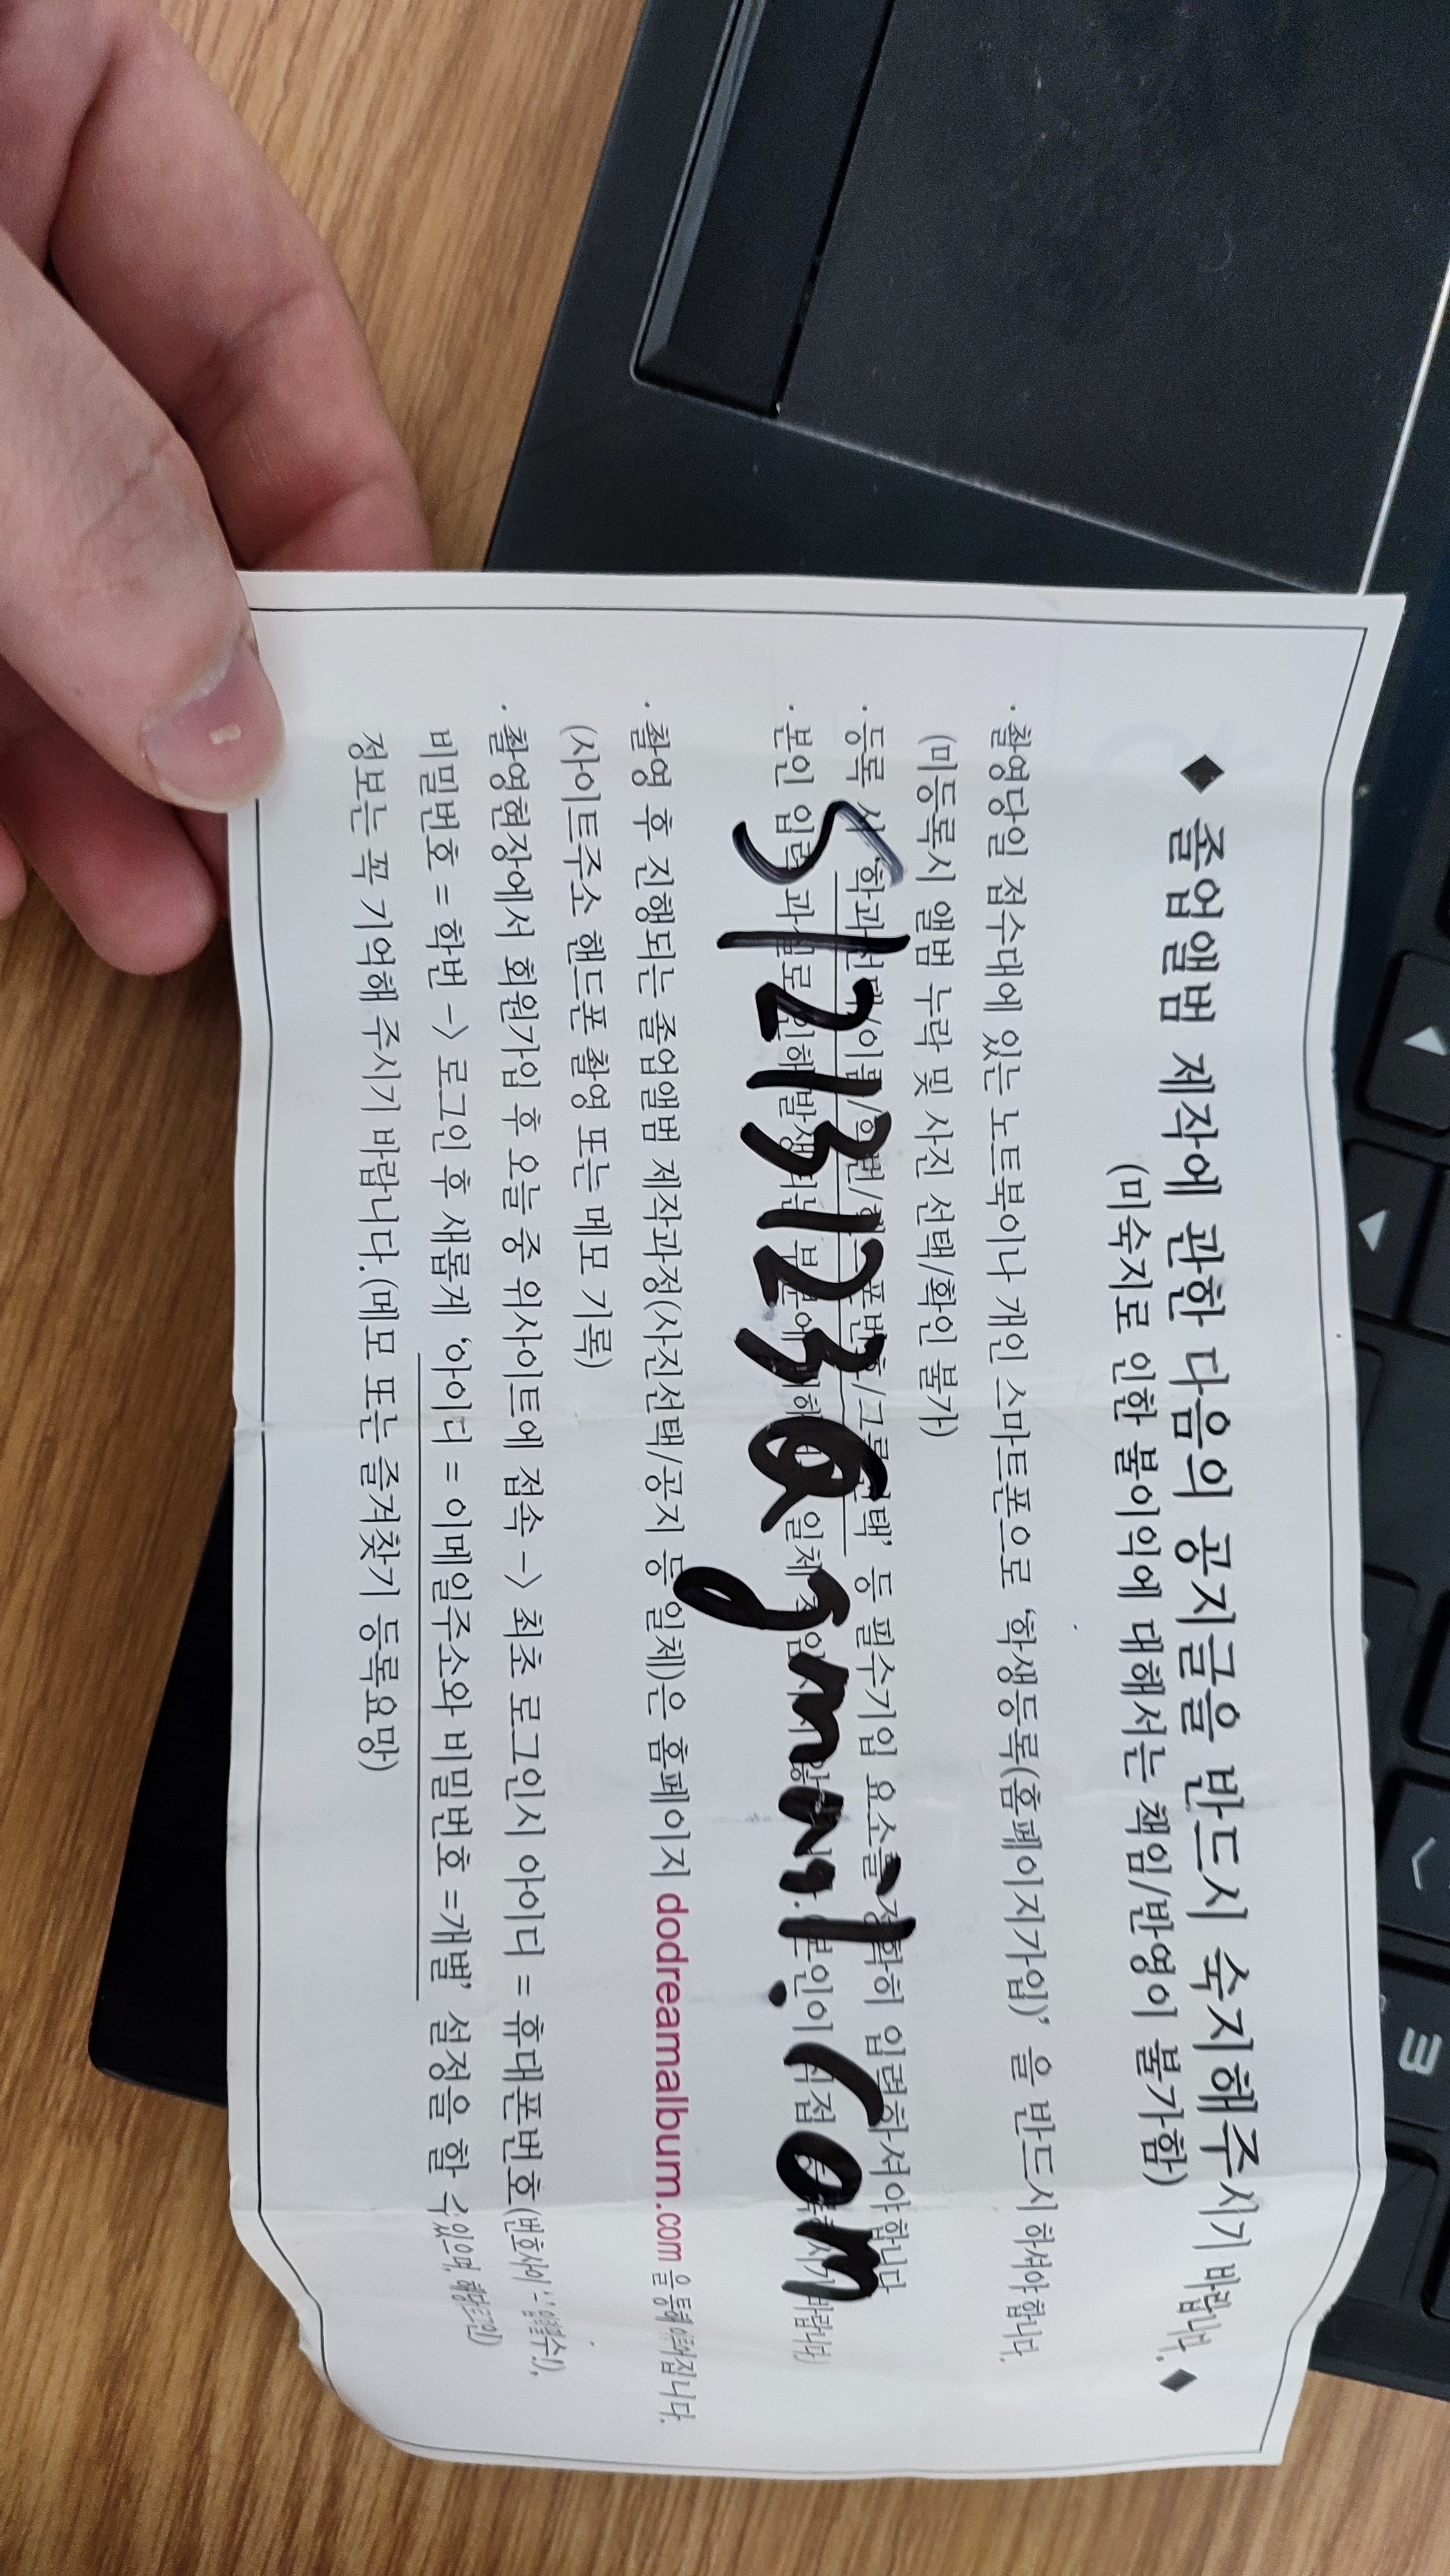 ◆ 졸업앨범 제작에 관한 다음의 공지글을 반드시 숙지해주시기 바랍니다. ◆
(미숙지로 인한 불이익에 대해서는 책임/반영이 불가함)
· 촬영당일 접수대에 있는 노트북이나 개인 스마트폰으로 '학생등록(홈페이지가입)' 을 반드시 하셔야 합니다.
(미등록시 앨범 누락 및 사진 선택/확인 불가)
· 등록 시 '학과선택/이름/학번/핸드폰번호/그룹선택' 등 필수기입 요소를 정확히 입력하셔야합니다
· 본인 입력 과실로 인해 발생되는 부분에 일체 본인이 직접 바랍니다)
S12131230@gmail.com
· 촬영 후 진행되는 졸업앨범 제작과정(사진선택/공지 등 일체)은 홈페이지 dodreamalbum.com 을 통해 이뤄집니다.
(사이트주소 핸드폰 촬영 또는 메모 기록)
· 촬영현장에서 회원가입 후 오늘 중 위사이트에 접속 -> 최초 로그인시 아이디 = 휴대폰번호(번호사이 '-' 입력필수!),
비밀번호 = 학번 -> 로그인 후 새롭게 '아이디 = 이메일주소와 비밀번호 =개별' 설정을 할 수있으며, 해당로그인
정보는 꼭 기억해 주시기 바랍니다.(메모 또는 즐겨찾기 등록요망)